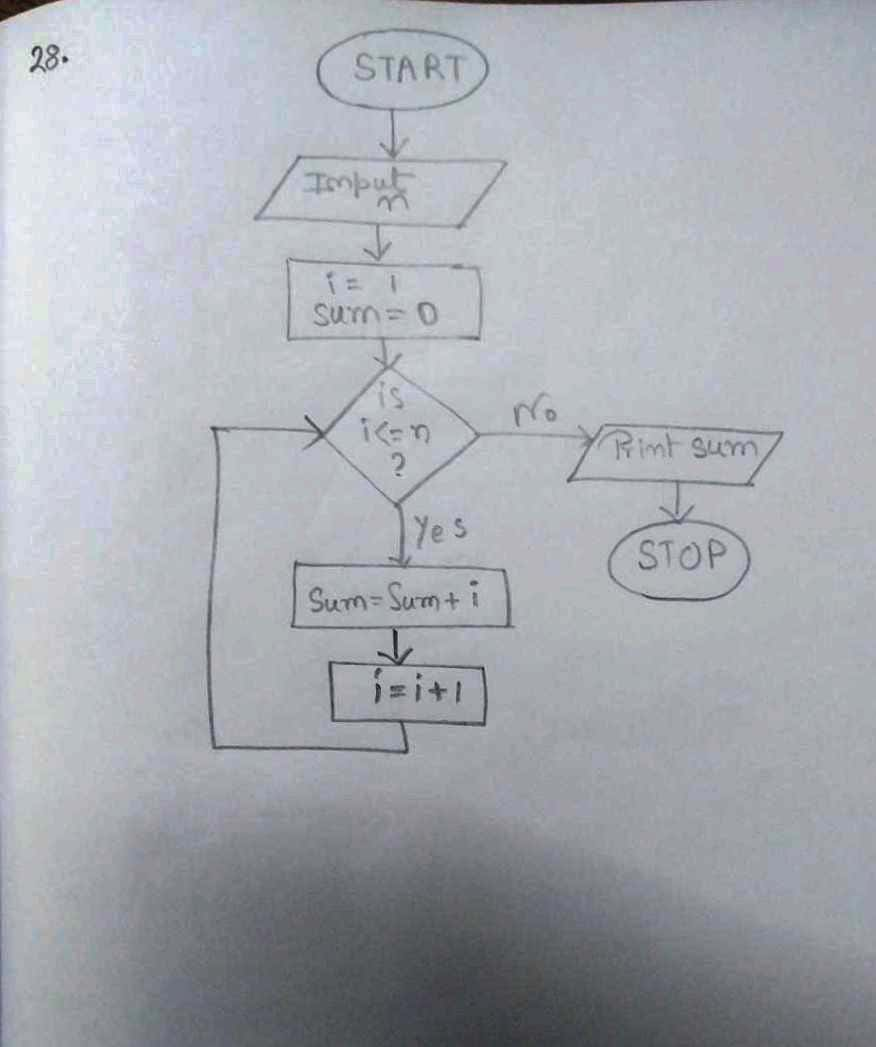 28.
START
Input
n
i = 1
sum = 0
is
i<=n
?
No
Print sum
Yes
STOP
Sum = Sum + i
i = i + 1